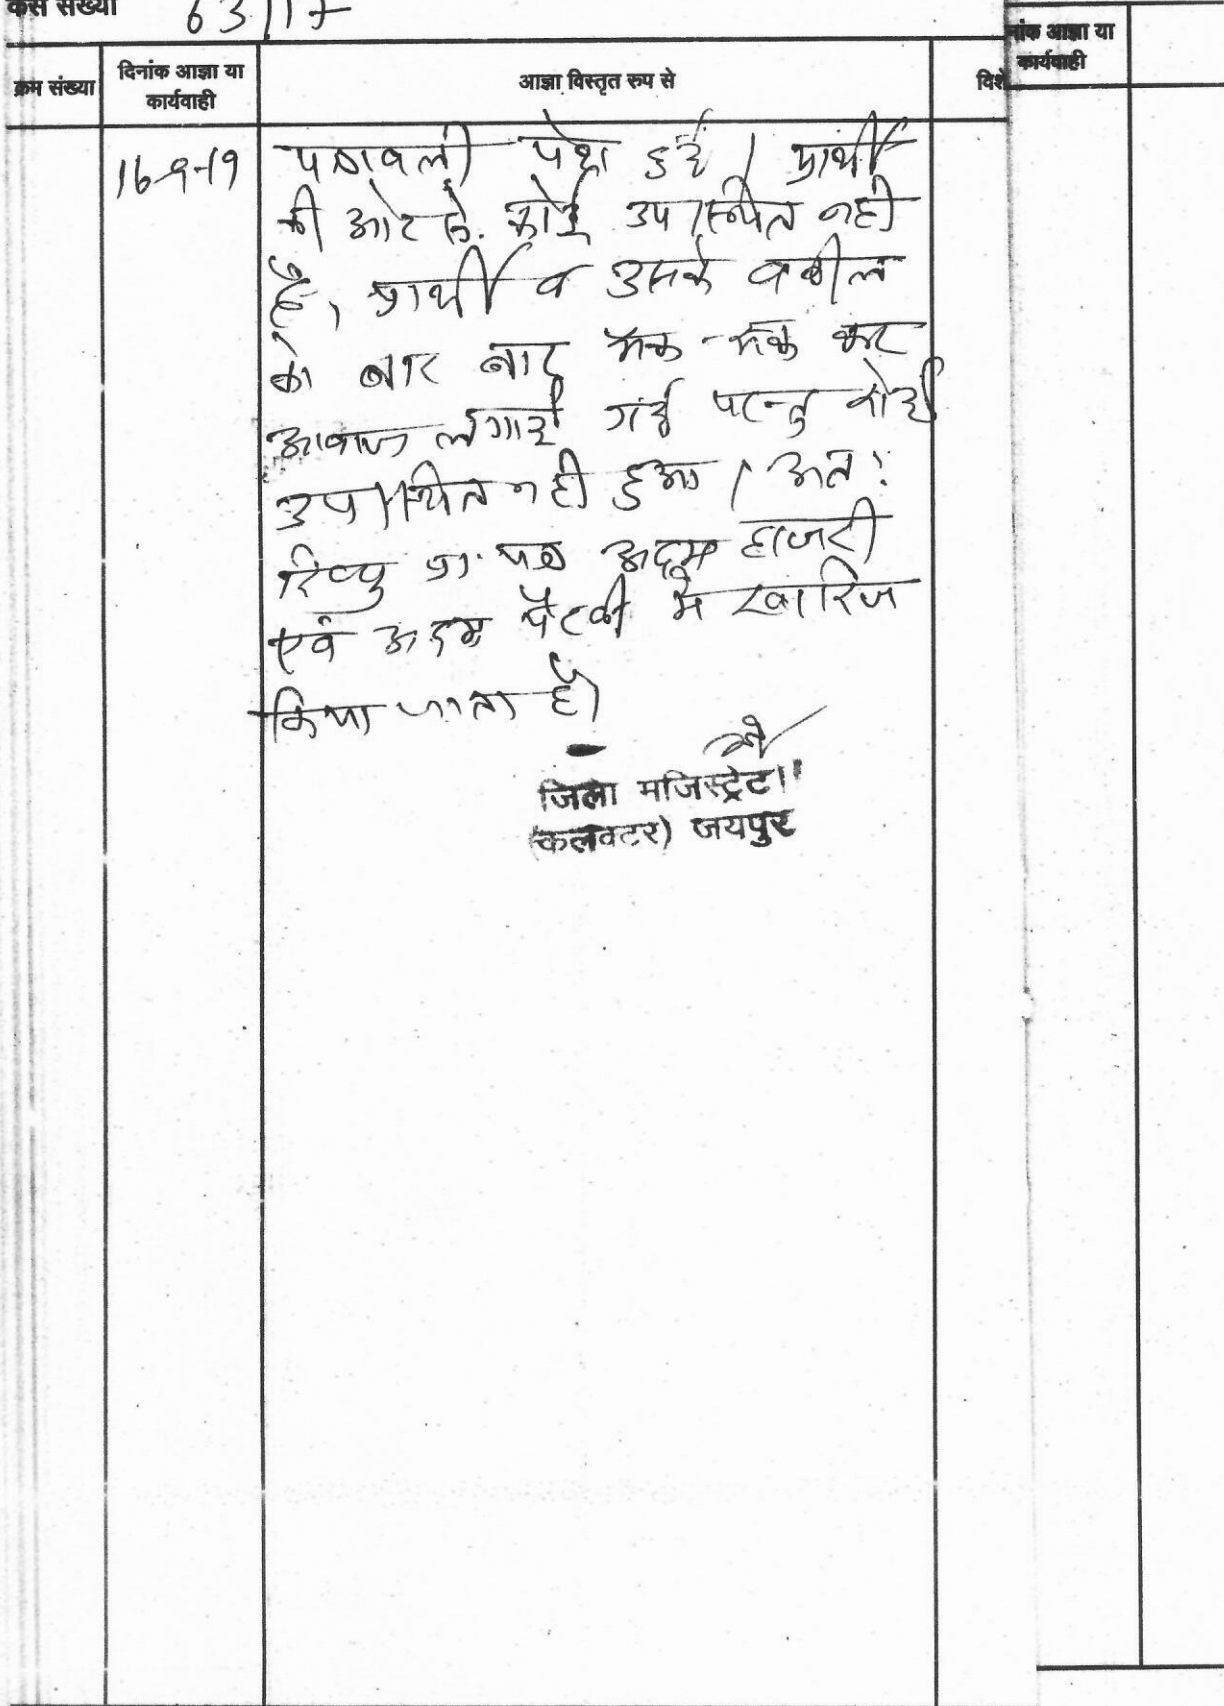 केस संख्या 63/17
क्रम संख्या
दिनांक आज्ञा या
कार्यवाही
आज्ञा विस्तृत रुप से
विशे
नांक आज्ञा या
कार्यवाही
16-9-19
पत्रावली पेश हुई। प्रार्थी
की ओर से. कोई उपस्थित नही
है, प्रार्थी व उसके वकील
को बार बार कर
आवाज लगाई गई परन्तु कोई
उपस्थित नही हुआ। अत:
रिव्यु प्रा. पत्र अदम हाजरी
एवं अदम पैरवी मे खारिज
किया जाता है।
जिला मजिस्ट्रेट
(कलक्टर) जयपुर